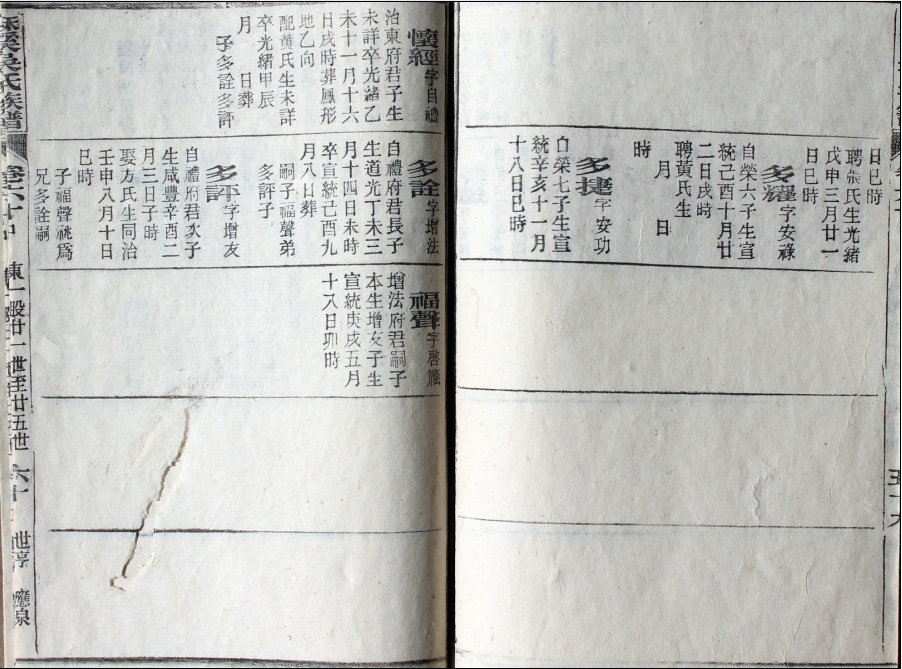 日巳時
聘張氏生光緒
戊申三月廿一
日巳時
多耀字安祿
自榮六子生宣
統己酉十月廿
二日戌時
聘黄氏生
月 日
時
多捷字安功
自榮七子生宣
統辛亥十一月
十八日巳時
懷經字自禮
治東府君子生
未詳卒光緒乙
未十一月十六
日戌時葬鳳形
地乙向
配黄氏生未詳
卒光緒甲辰
月 日葬
子多詮多評
多詮字增法
自禮府君長子
生道光丁未三
月十四日未時
卒宣統己酉九
月八日葬
嗣子福聲弟
多評子
多評字增友
自禮府君次子
生咸豐辛酉二
月三日子時
娶方氏生同治
壬申八月十日
巳時
子福聲祧爲
兄多詮嗣
福聲字啓
增法府君嗣子
本生增友子生
宣統庚戌五月
十八日卯時
吳氏族譜
卷六十
東一股廿一世至廿五世
六十
世享
應泉